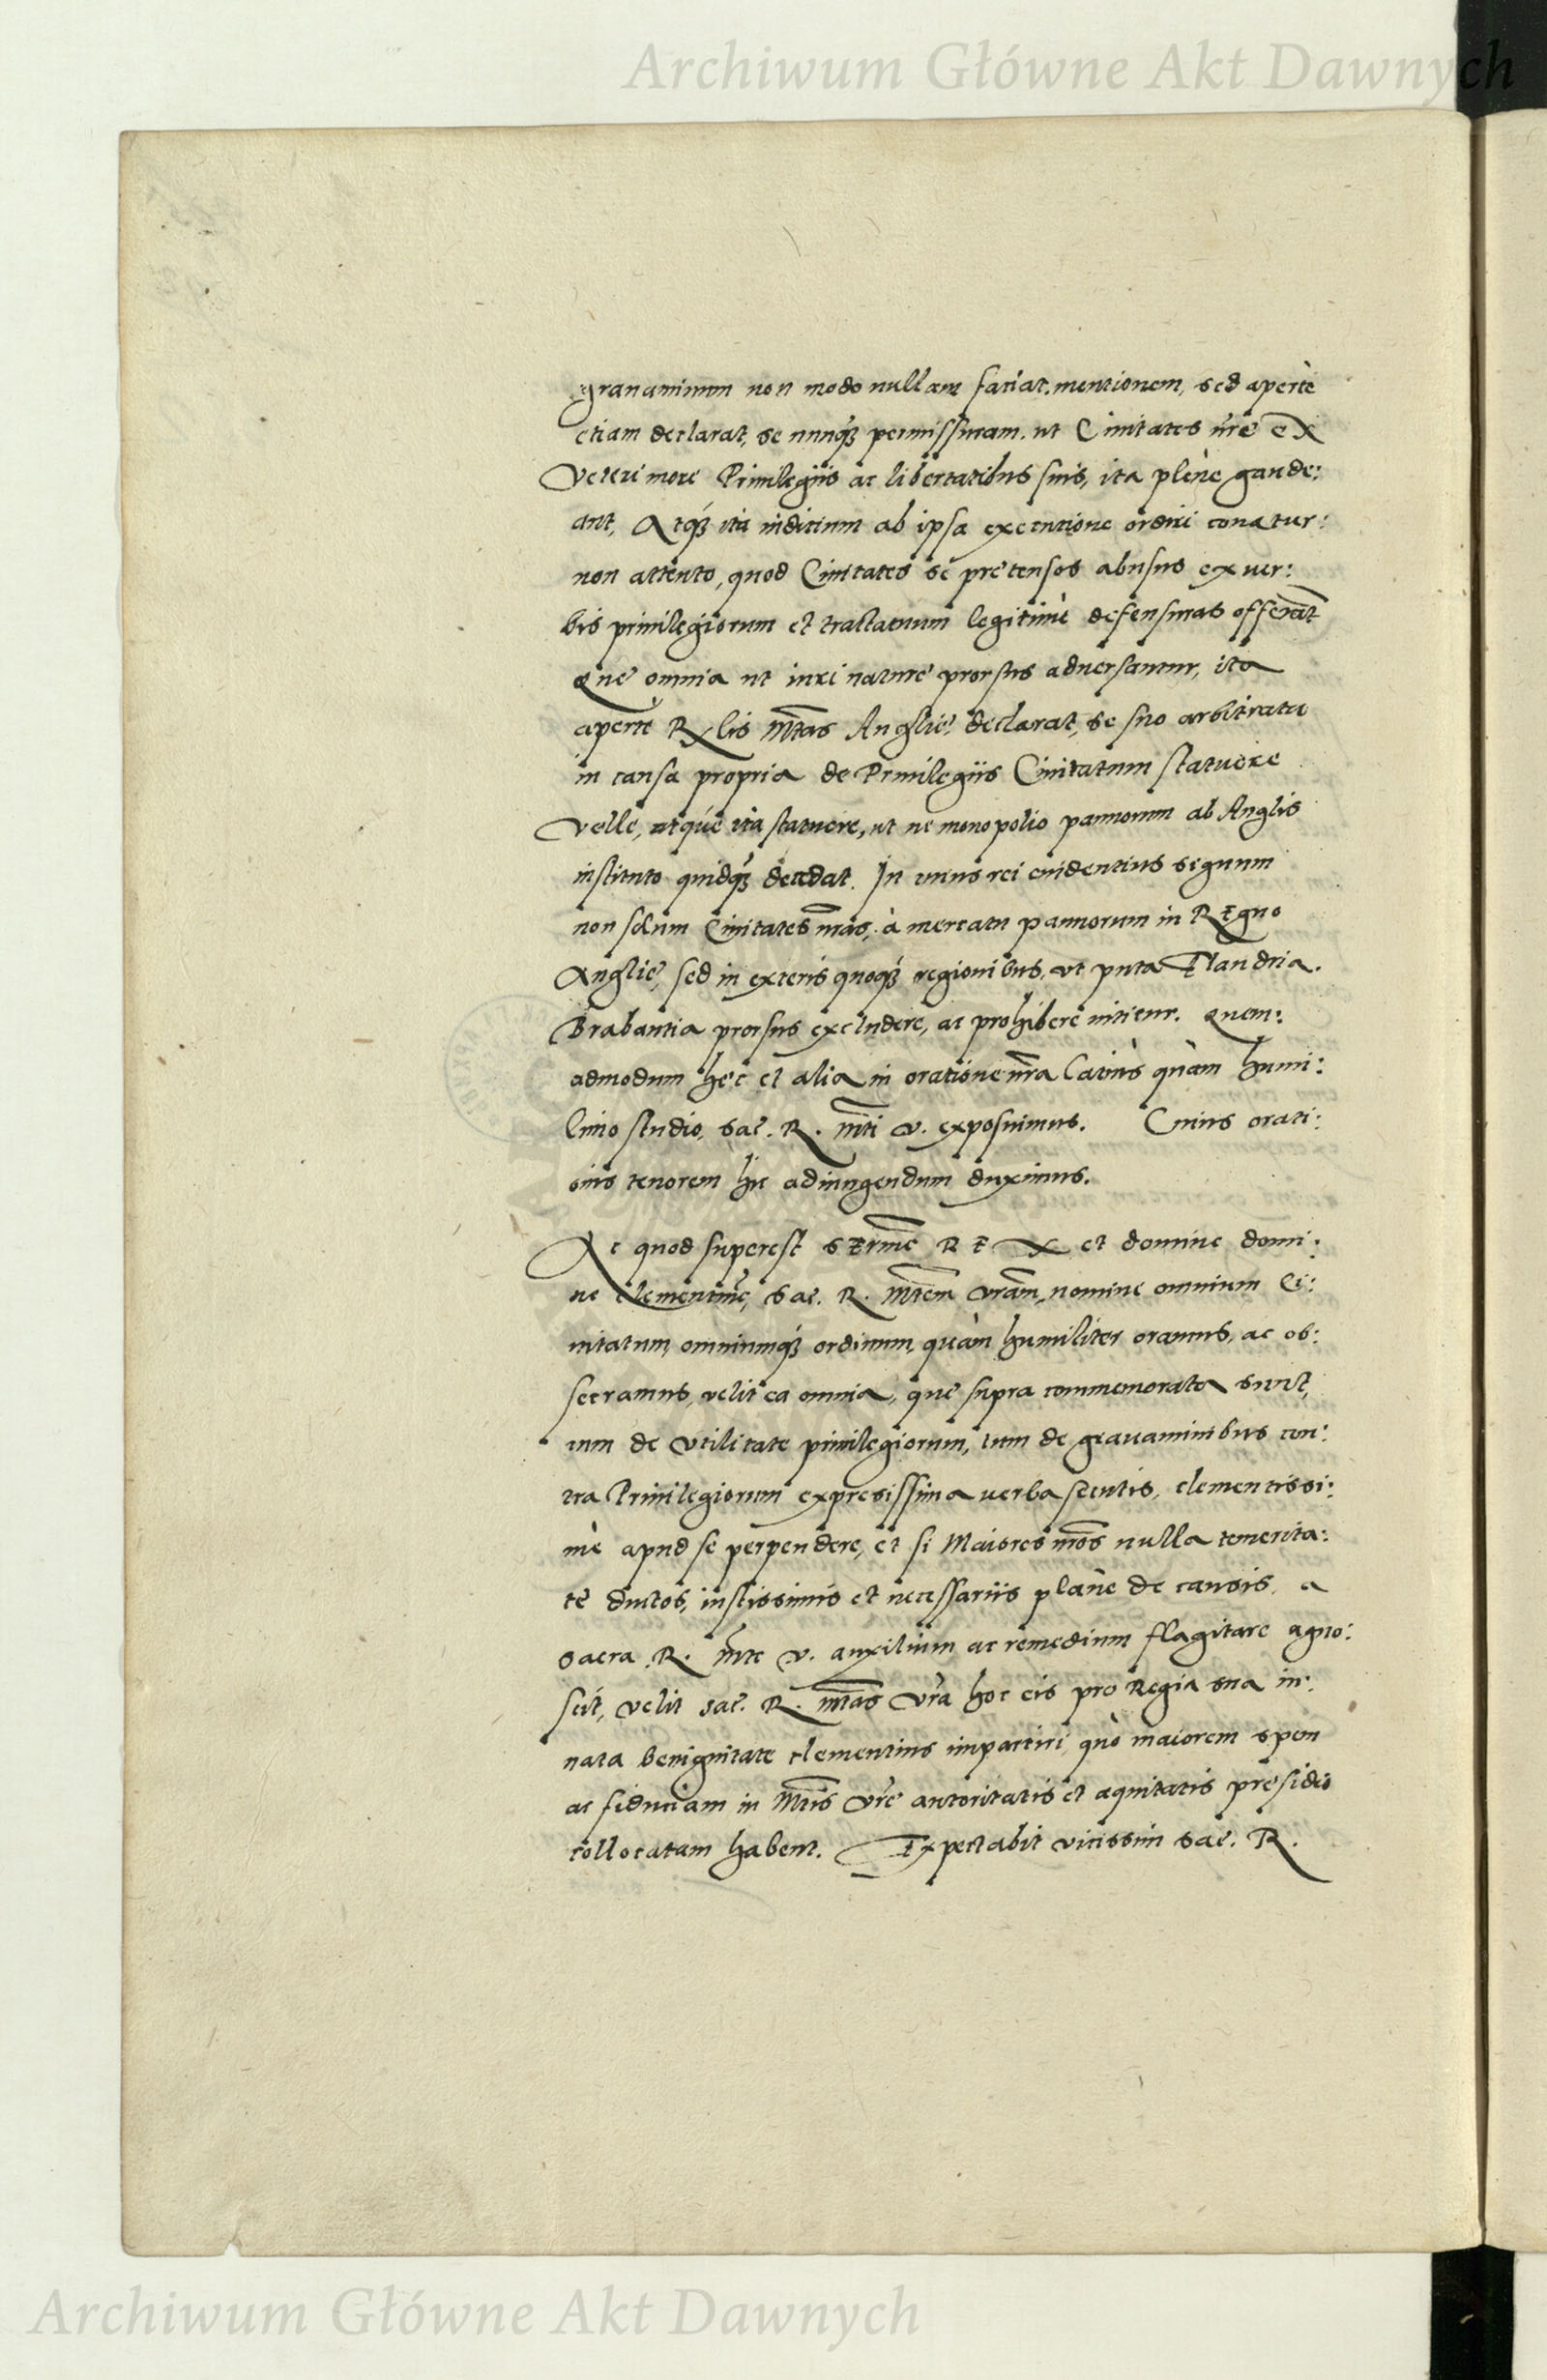 Archiwum Główne Akt Dawnych
grauaminum non modo nullam faciat mentionem, sed apertè
etiam declarat, se nunq3 permissuram, ut Ciuitates nr̃e ex
Veteri more Priuilegijs ac libertatibus suis, ita plenè gaude:
ant, Atq3 ita iuditium ab ipsa executione ordiri conatur:
non attento, quod Ciuitates se prętensos abusus ex uer:
bis priuilegiorum et tractatuum legitimè defensuras offerãt
Quę omnia ut iuri naturę prorsus aduersantur, ita
apertè Rx lis Mtas Anglię declarat, se suo arbitratu
in causa propria de Priuilegijs Ciuitatum statuere
Velle, atque ita statuere, ut ne monopolio pannorum ab Anglis
instituto quidq3 decedat. In cuius rei euidentius signum
non solum Ciuitates nr̃as, à mercatu pannorum in REgno
Anglię, sed in exteris quoq3 regionibus, ut puta Flandria.
Brabantia prorsus excludere, ac prohibere nititur. Quem:
admodum hęc et alia in oratione nr̃a Latiùs quàm humi:
limo studio, Sac. R. Mti V. exposuimus. Cuius orati:
onis tenorem hic adiungendum duximus.
Ac quod superest SErme REX et domine domi:
ne clementme, Sac. R. Mtem Vram, nomine omnium Ci:
uitatum, omniumq3 ordinum, quàm humiliter oramus, ac ob:
secramus, velit ea omnia, quę supra commemorata sunt,
tum de Vtilitate priuilegiorum, tum de grauaminibus con:
tra Priuilegiorum expresissima uerba secutis, clementissi:
mè apud se perpendere, et si Maiores nr̃os nulla temerita:
te ductos, iustissimis et necessarijs planè de causis, a
Sacra R. Mte V. auxilium ac remedium flagitare agno:
scit, Velit Sac. R. Mtas Vrã hoc eis pro Regia sua in:
nata benignitate clementius impartiri, quò maiorem spem
ac fiduciam in Mtis Vrę autoritatis et aequitatis pręsidio
collocatam habent. Expectabit vicissim Sac. R.
Archiwum Główne Akt Dawnych